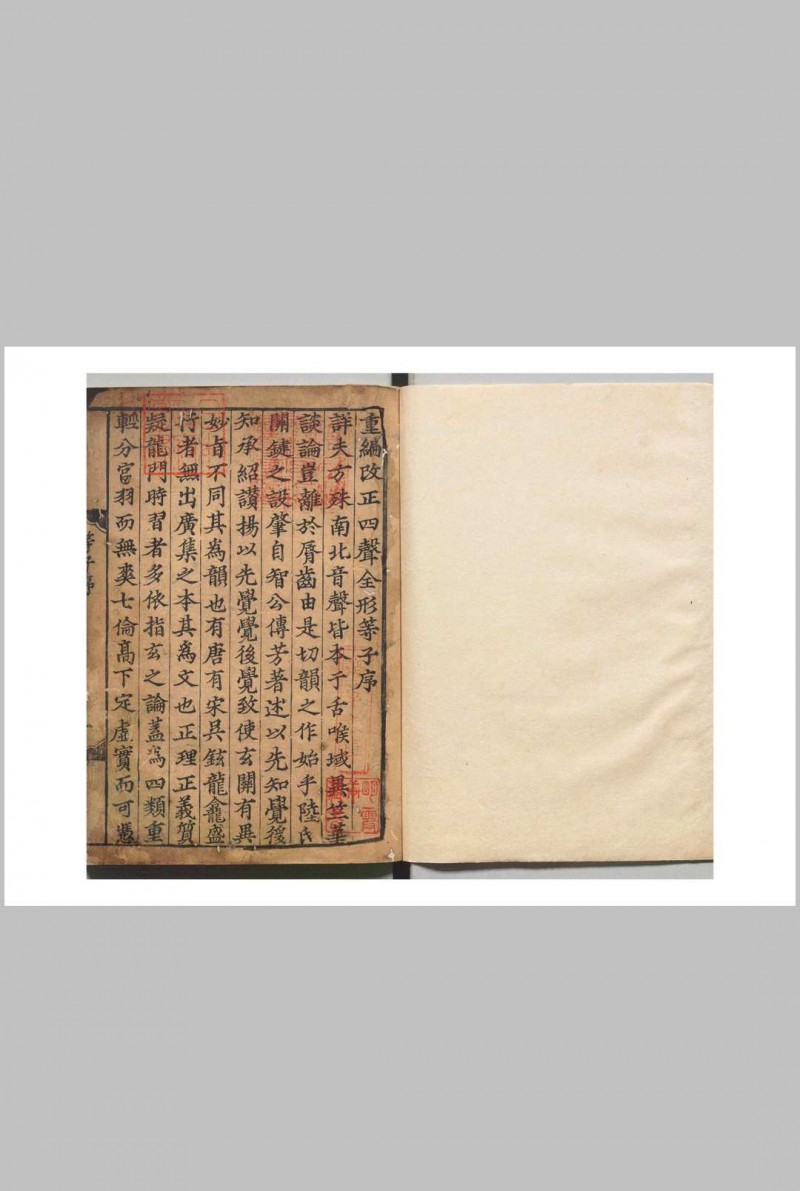 重編改正四聲全形等子序
詳夫方殊南北音聲皆本于舌喉域異竺華
談論豈離於脣齒由是切韻之作始乎陸氏
關鍵之設肇自智公傳芳著述以先知覺後
知承紹讃揚以先覺覺後覺致使玄關有異
妙旨不同其為韻也有唐有宋具鉉龍龕盛
行者無出廣集之本其為文也正理正義質
疑龍門時習者多依指玄之論蓋為四類重
輕分宮羽而無爽七倫高下定虛實而可憑
等子序